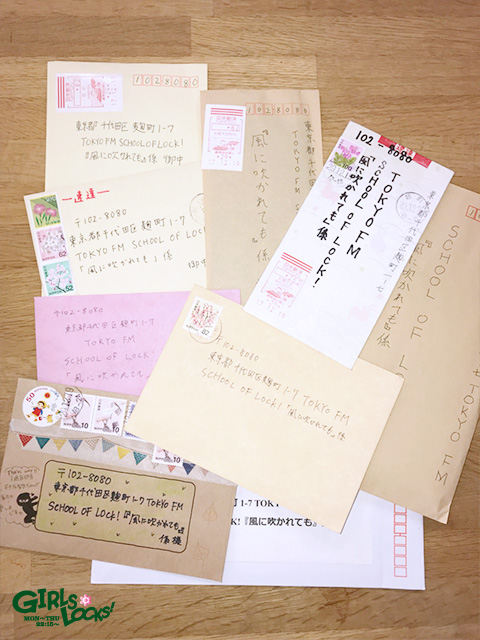 1028080
東京都千代田区麹町1-7
TOKYO FM SCHOOL OF LOCK!
『風に吹かれても』係 御中
1028080
東京都千代田
TOKYO FM
『風に吹かれても』係
102-8080
TOKYO FM
SCHOOL OF LOCK!
『風に吹かれても』係
速達
〒102-8080
東京都千代田区麹町1-7
TOKYO FM SCHOOL OF LOCK
『風に吹かれても』係
52
62
SCHOOL OF L
TOKYO FM
『風に吹かれても』係
〒102-8080
東京都千代田区麹町1-7
TOKYO FM
SCHOOL OF LOCK
『風に吹かれて
82
〒102-8080
東京都千代田区麹町1-7 TOKYO FM
SCHOOL OF LOCK! 『風に吹かれても』係
50
10
10
10
〒102-8080
東京都千代田区麹町1-7 TOKYO FM
SCHOOL OF LOCK! 『風に吹かれても』
係様
1-7 TOKY
K!『風に吹かれても』
GIRLS LOCKS!
MON~THU
22:15~